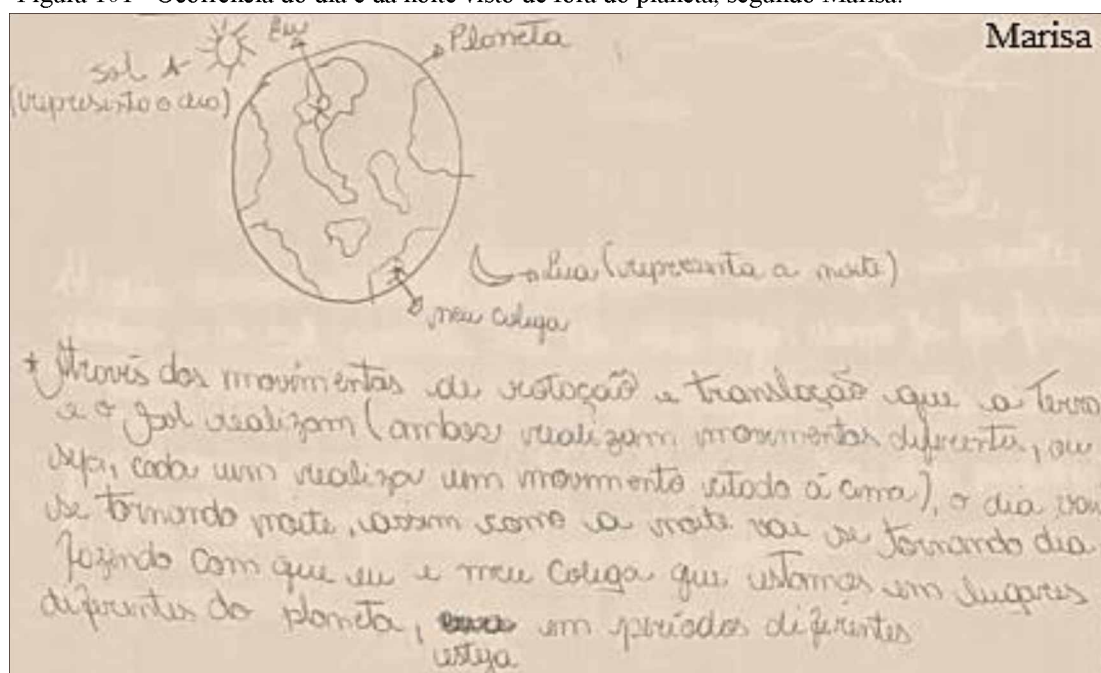 Figura 101 - Ocorrência do dia e da noite visto de fora do planeta, segundo Marisa.
Marisa
Eu
Planeta
Sol
(representa o dia)
Lua (representa a noite)
meu colega
* Através dos movimentos de rotação e translação que a Terra
e o Sol realizam (ambos realizam movimentos diferentes, ou
seja, cada um realiza um movimento citado à cima), o dia vai
se tornando noite, assim como a noite vai se tornando dia
fazendo com que eu e meu colega que estamos em lugares
diferentes do planeta, em períodos diferentes
esteja